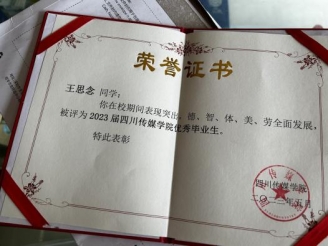 荣誉证书
王思念 同学：
你在校期间表现突出，德、智、体、美、劳全面发展，
被评为2023届四川传媒学院优秀毕业生。
特此表彰
四川传媒学院
二〇二三年五月